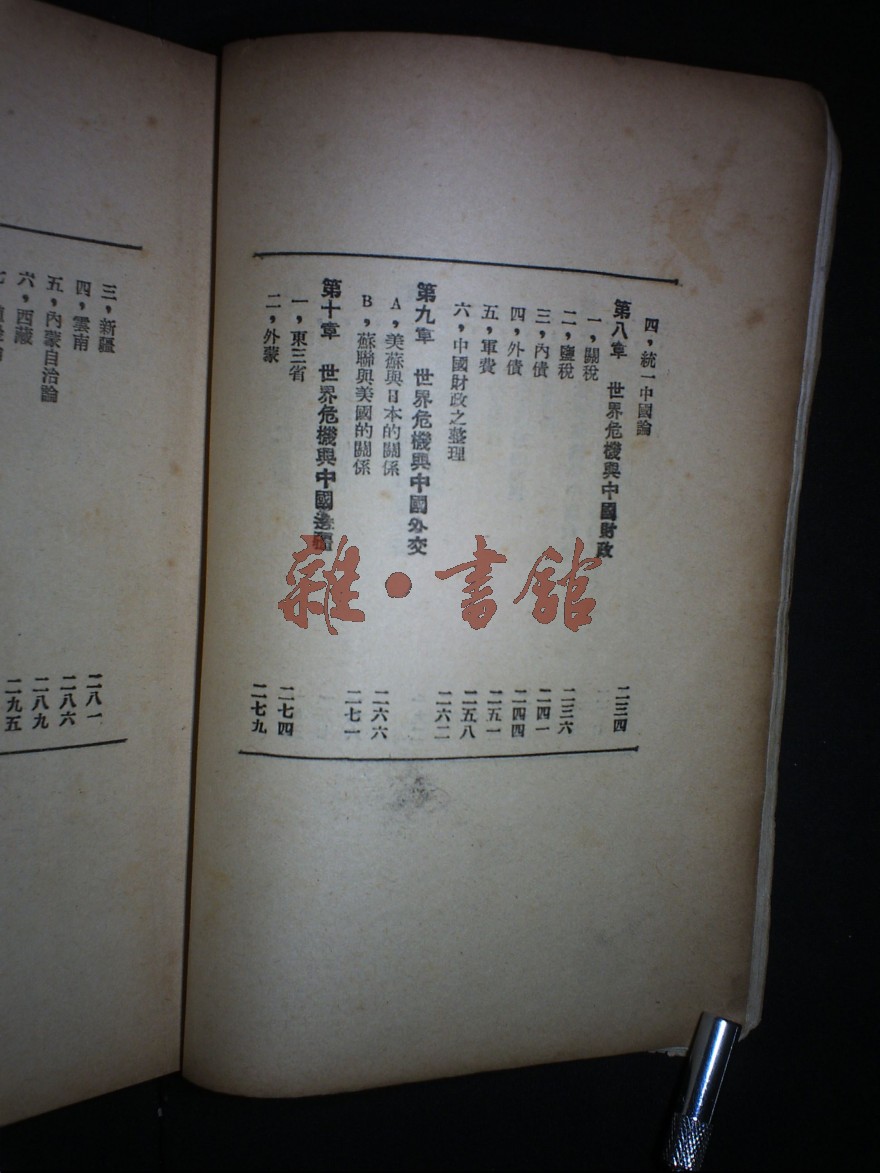 四，統一中國論 二三四
第八章 世界危機與中國財政
一，關稅 二三六
二，鹽稅 二四一
三，內債 二四四
四，外債 二五一
五，軍費 二五八
六，中國財政之整理 二六二
第九章 世界危機與中國外交
A，美蘇與日本的關係 二六六
B，蘇聯與美國的關係 二七一
第十章 世界危機與中國邊疆
一，東三省 二七四
二，外蒙 二七九
三，新疆 二八一
四，雲南 二八六
五，內蒙自治論 二八九
六，西藏 二九五
雜·書館